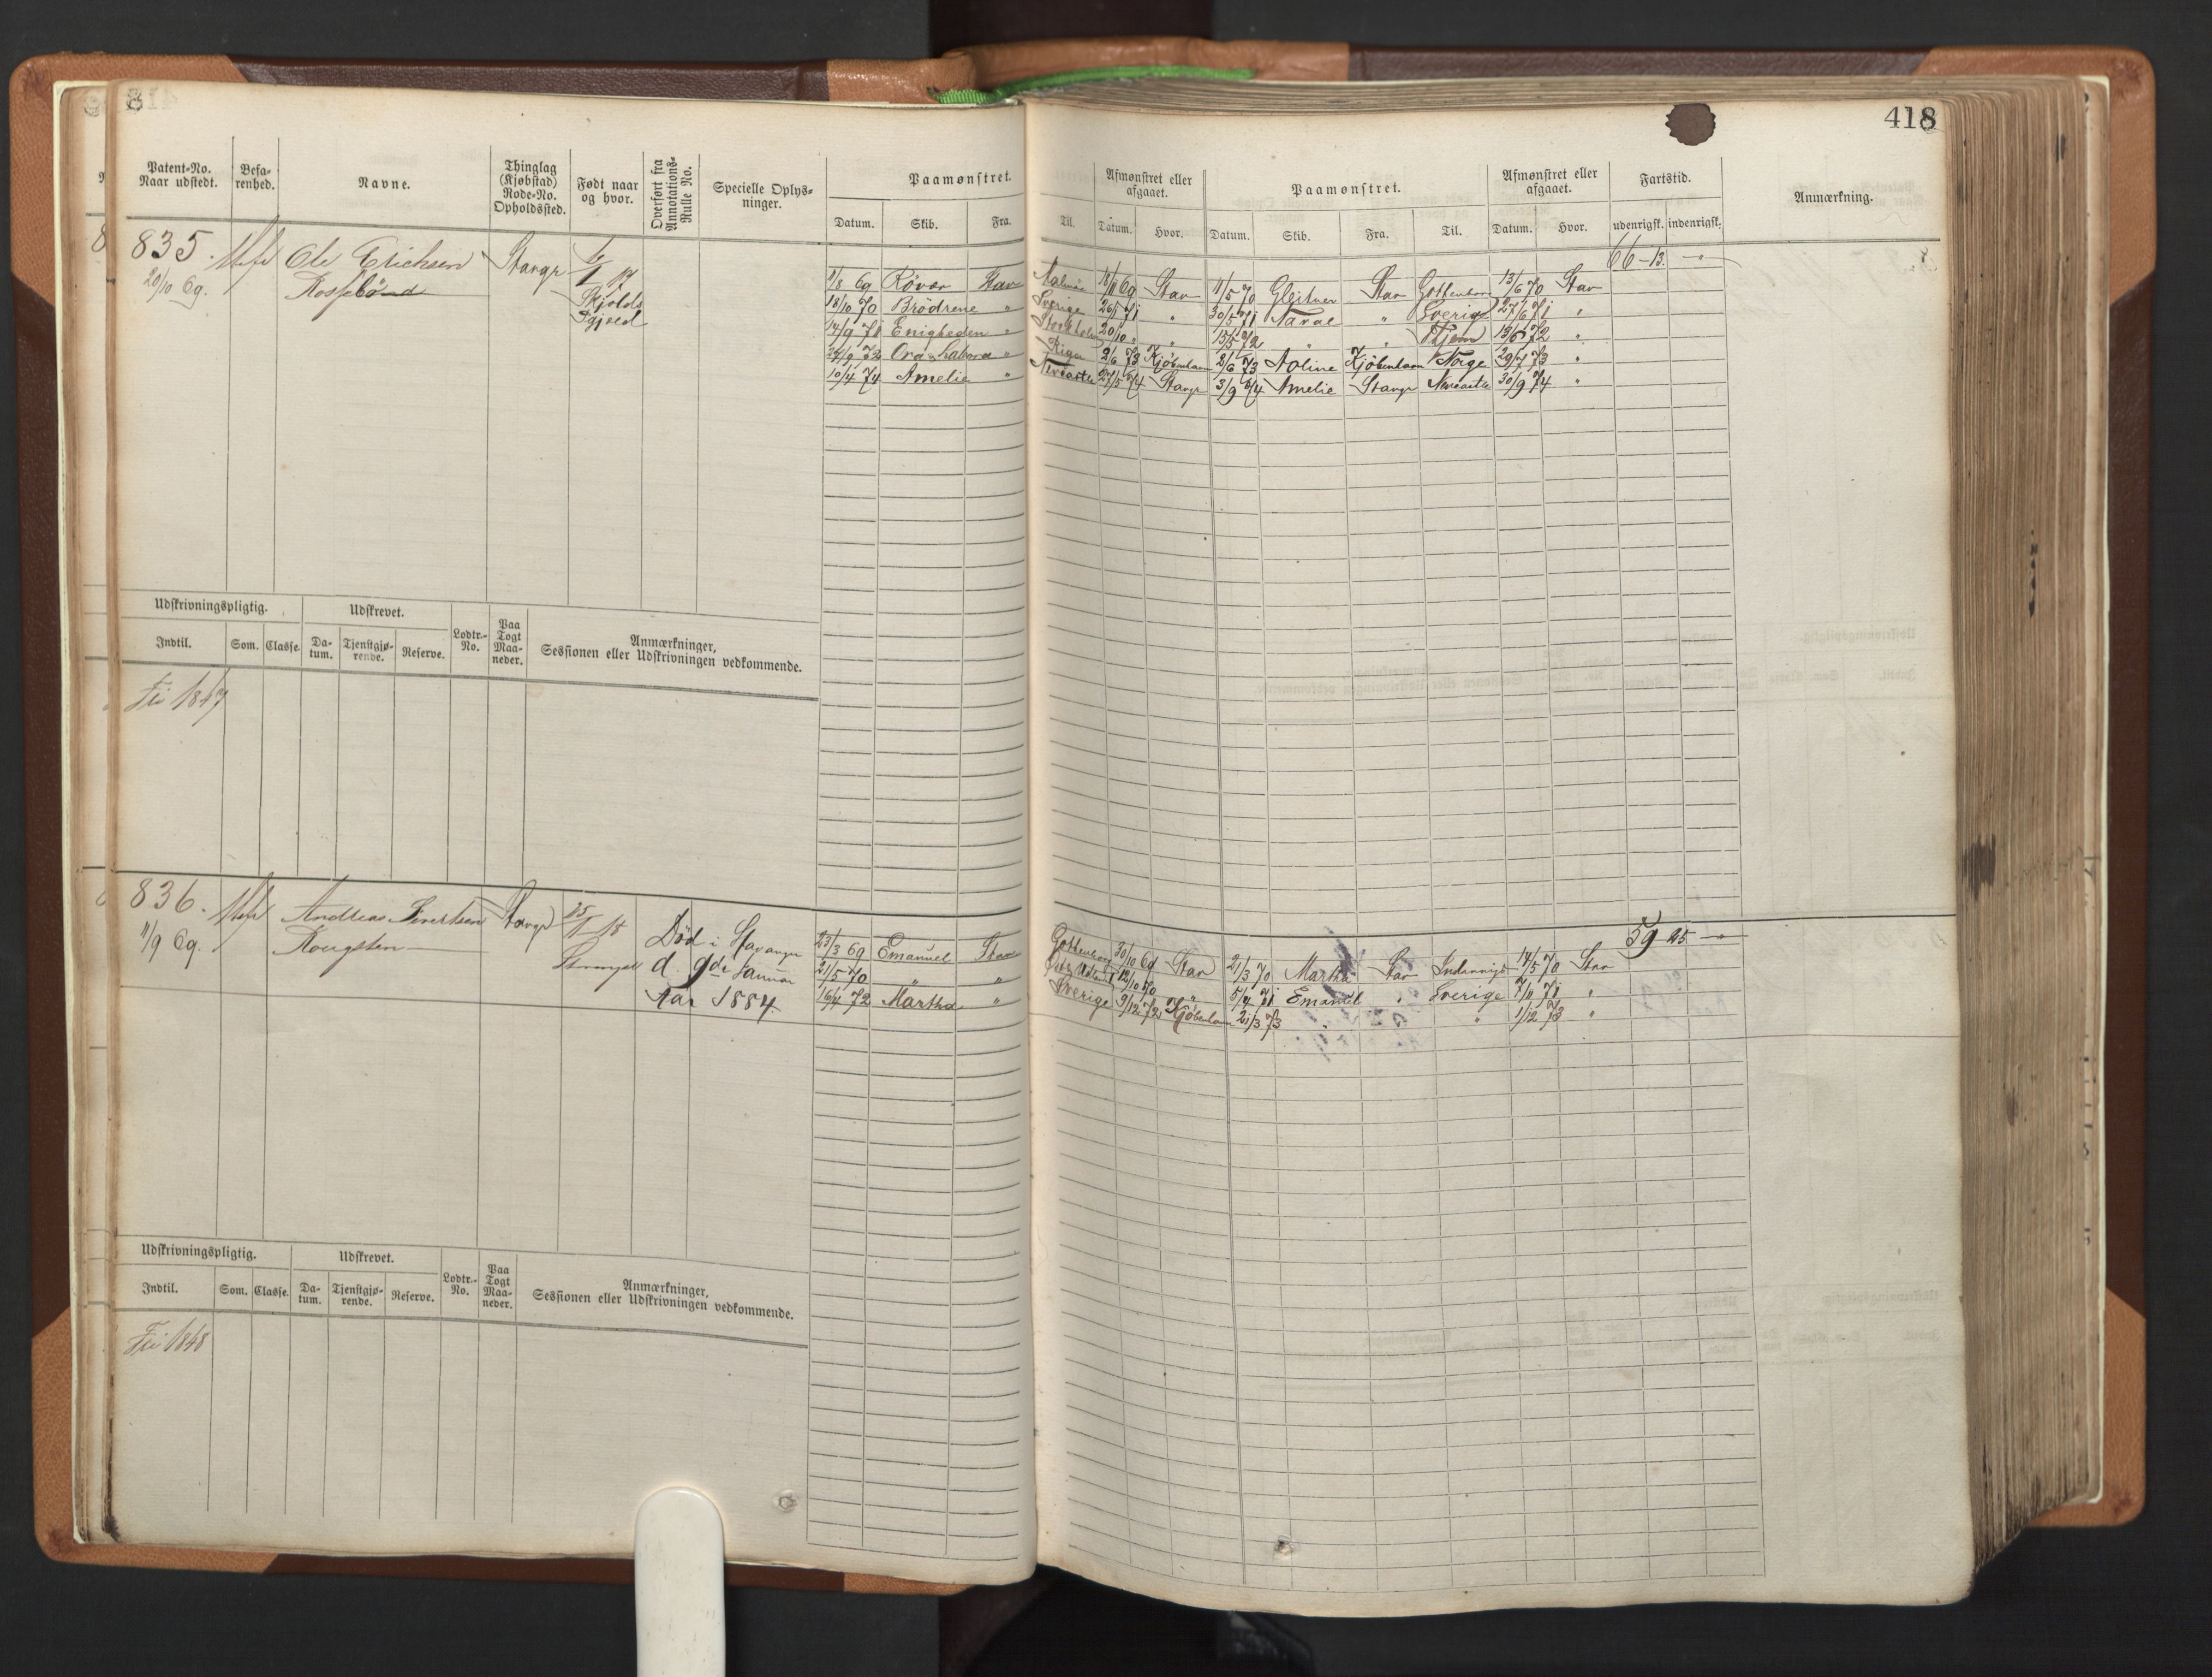 418
Patent-No. Naar udstedt. Befa-renhed. Navne. Thinglag (Kjøbstad) Rode-No. Opholdssted. Født naar og hvor. Overført fra Annotations-Rulle No. Specielle Oplys-ninger. Paamønstret. Afmønstret eller afgaaet. Paamønstret. Afmønstret eller afgaaet. Fartstid. Anmærkning.
Datum. Skib. Fra. Til. Datum. Hvor. Datum. Skib. Fra. Til. Datum. Hvor. udenrigsk. indenrigsk.
835. Ole Erichsen Stavgr 66-13. -"-
20/10 69. Rossebönd
Skjolds
11/8 69 Røvær Stav 18/11 69 Stav 11/5 70 Gleitner Stav Gottenborg 13/6 70 Stav
18/10 70 Brödrene " Sverige 26/1 71 " 30/5 71 " Sverige 27/6 71 "
14/9 71 Enigheden " Stockholm 20/10 " " 15/5 72 " " 13/6 72 "
24/9 72 Ora & Labora " Riga 2/6 73 Kjöbenhavn 2/6 73 Aoline Kjöbenhavn Norge 29/7 73 "
10/4 74 Amelie " Newcastle 27/5 74 Stavgr 3/9 74 Amelie Stavgr Newcastle 30/9 74 "
Udskrivningspligtig. Udskrevet. Lodtr.-No. Paa Togt Maa-neder. Anmærkninger, Sessionen eller Udskrivningen vedkommende.
Indtil. Som. Classe. Da-tum. Tjenstgjø-rende. Reserve.
Fri 1847
836. Andreas Sivertsen Stavgr 59-25 -"-
11/9 69. Rougsten
Død i Stavanger
d. 9de Januar
Aar 1884.
23/3 69 Emanuel Stav Gottenborg 30/10 69 Stav 21/3 70 Martha Stav Indenrigs 14/5 70 Stav
21/5 70 " " 12/10 70 " 5/4 71 Emanuel " Sverige 7/11 71 "
16/4 72 Martha " Sverige 9/12 72 Kjöbenhavn 21/3 73 " " 1/12 73 "
Udskrivningspligtig. Udskrevet. Lodtr.-No. Paa Togt Maa-neder. Anmærkninger, Sessionen eller Udskrivningen vedkommende.
Indtil. Som. Classe. Da-tum. Tjenstgjø-rende. Reserve.
Fri 1848